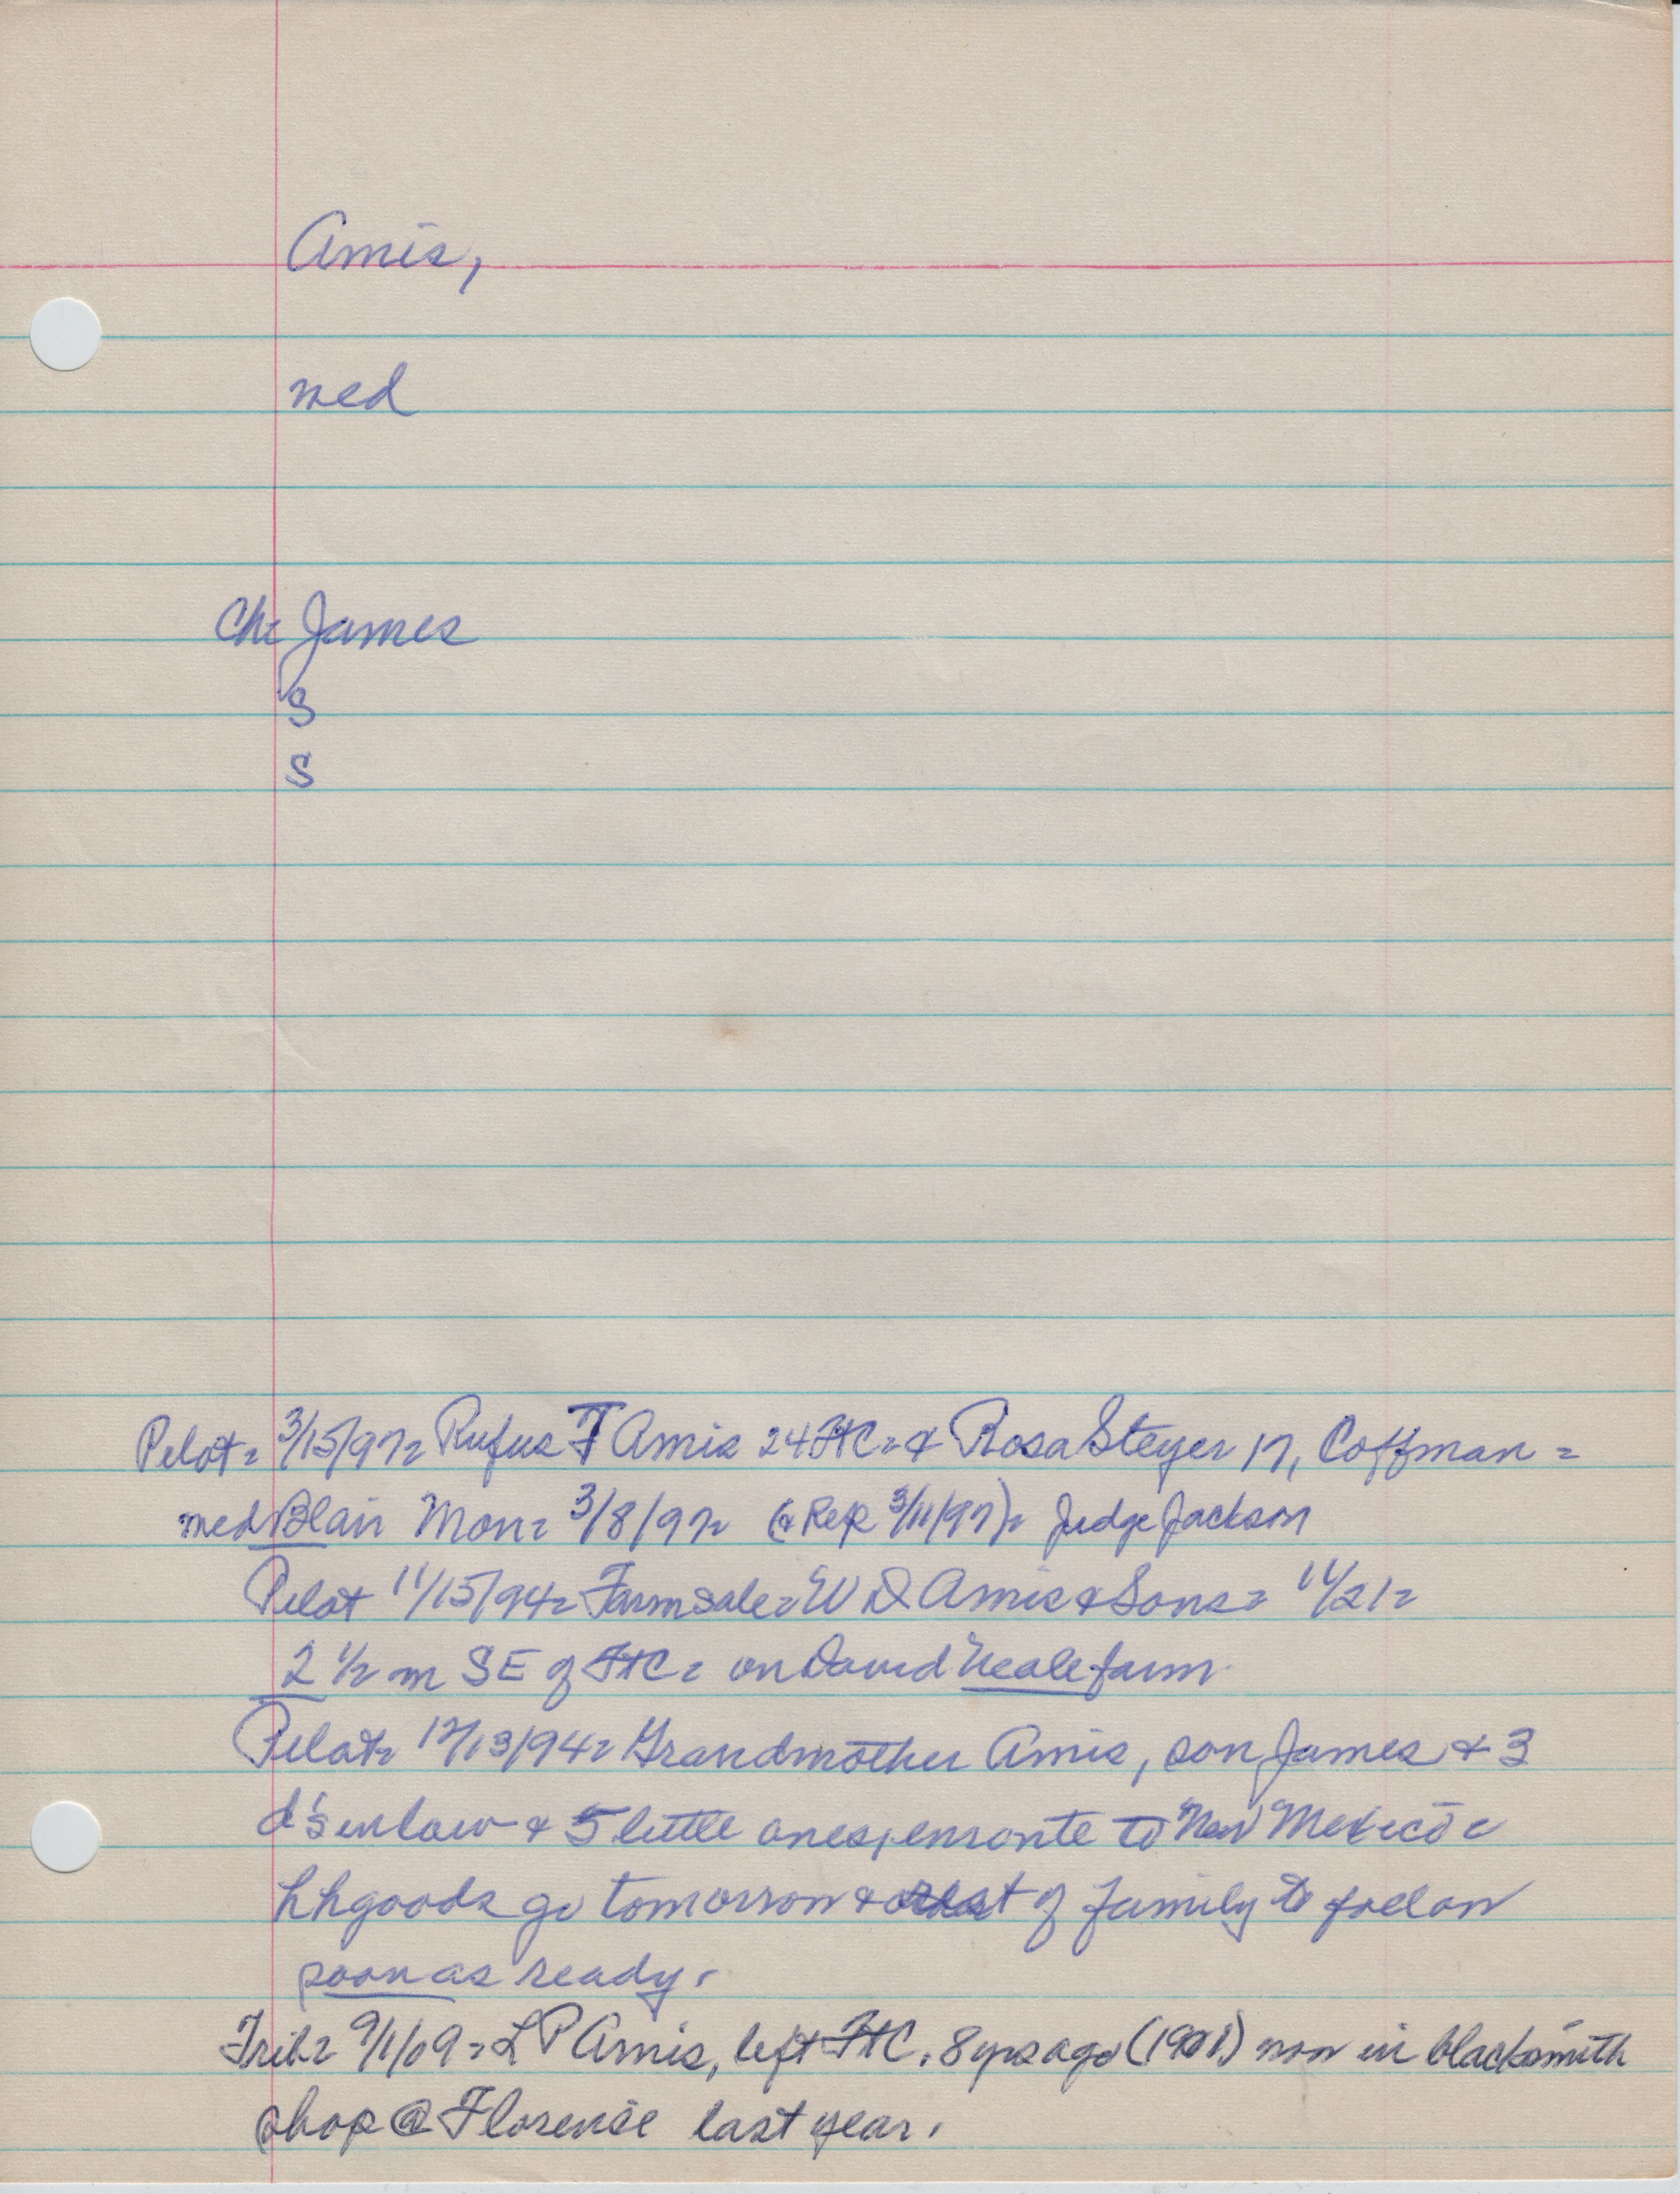 Amis,
med
Ch= James
S
S
Pilot= 3/15/97= Rufus F Amis 24 FtC= & Rosa Steyer 17, Coffman=
med Blair Mon= 3/8/97= (& Rep 3/11/97)= Judge Jackson
Pilot 11/15/94= Farm sale= W D Amis & Sons= 11/21=
2 1/2 m SE of FtC= on David Neale farm.
Pilot= 12/13/94= Grandmother Amis, son James & 3
d's in law & 5 little ones, enroute to New Mexico=
hhgoods go tomorrow & rest of family to follow
soon as ready.
Trib= 9/1/09= L P Amis, left FtC. 8 yrs ago (1901) now in blacksmith
shop @ Florence last year.